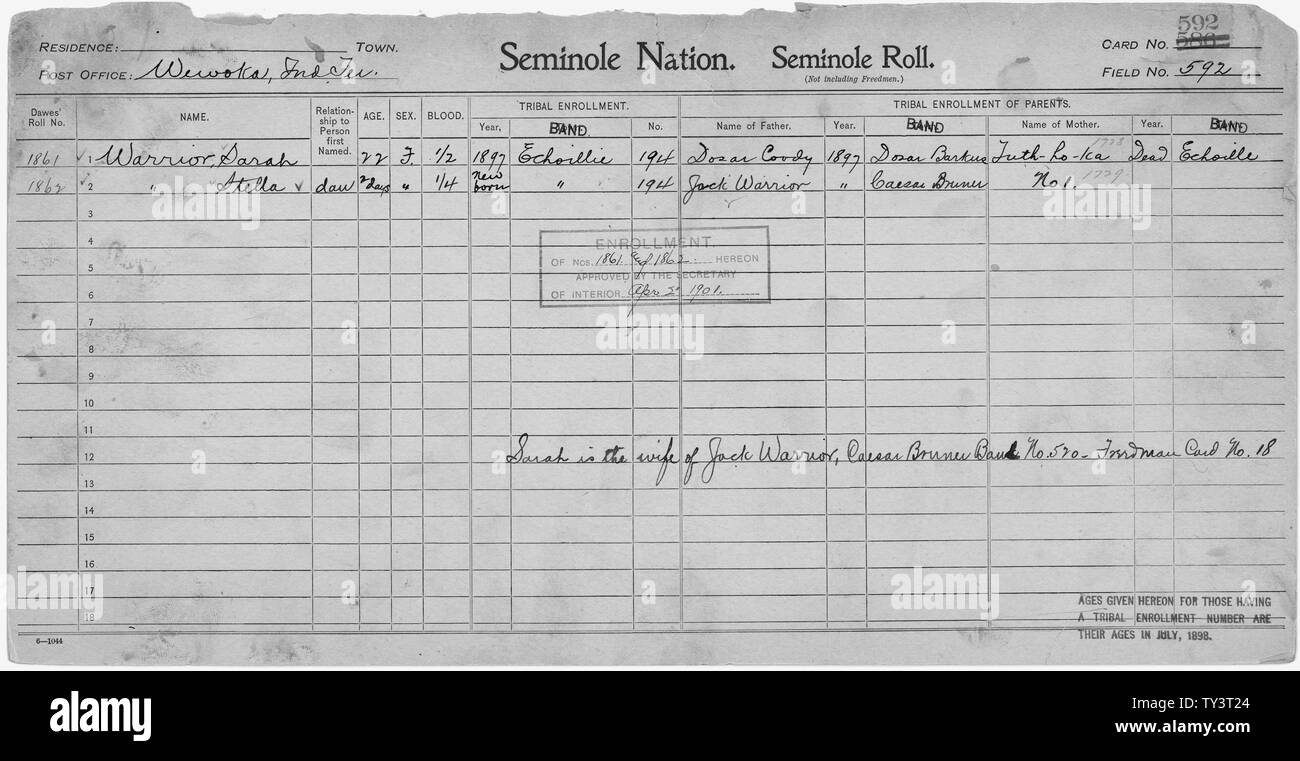 592
586
RESIDENCE: TOWN.
Seminole Nation. Seminole Roll.
(Not including Freedmen.)
CARD NO.
POST OFFICE: Wewoka, Ind Ter.
FIELD NO. 592
Dawes' Roll No. NAME. Relationship to Person first Named. AGE. SEX. BLOOD. TRIBAL ENROLLMENT. TRIBAL ENROLLMENT OF PARENTS.
Year, BAND. No. Name of Father. Year. BAND Name of Mother. Year. BAND
1861 1 Warrior, Sarah 22 F. 1/2 1897 Echoillie 194 Dosar Coody 1897 Dosar Barkus Tuth-ho-ka Dead Echoille
1862 2 " Stella dau 2 days " 1/4 New born " 194 Jack Warrior " Caesar Bruner No 1.
3
4
ENROLLMENT.
OF NOS. 1861 & 1862 HEREON
5
APPROVED BY THE SECRETARY
6
OF INTERIOR Apr 2" 1901.
7
8
9
10
11
12 Sarah is the wife of Jack Warrior, Caesar Bruner Band No. 520 - Freedman Card No. 18
13
14
15
16
17
18
AGES GIVEN HEREON FOR THOSE HAVING
A TRIBAL ENROLLMENT NUMBER ARE
THEIR AGES IN JULY, 1898.
6—1044
alamy stock photo
alamy
Image ID: TY3T24
www.alamy.com